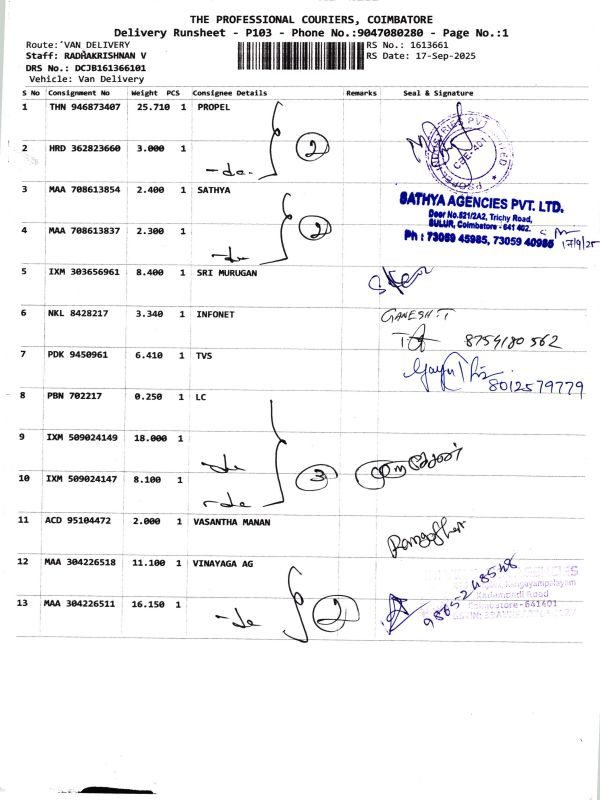 THE PROFESSIONAL COURIERS, COIMBATORE
Delivery Runsheet - P103 - Phone No.:9047080280 - Page No.:1
Route: VAN DELIVERY RS No.: 1613661
Staff: RADHAKRISHNAN V RS Date: 17-Sep-2025
DRS No.: DCJB161366101
Vehicle: Van Delivery
S No Consignment No Weight PCS Consignee Details Remarks Seal & Signature
1 THN 946873407 25.710 1 PROPEL
2 HRD 362823660 3.000 1
-do- 2
3 MAA 708613854 2.400 1 SATHYA
SATHYA AGENCIES PVT. LTD.
Door No.521/2A2, Trichy Road,
SULUR, Coimbatore - 641 402.
4 MAA 708613837 2.300 1
-do- 2
Ph : 73059 45985, 73059 40985 17/9/25
5 IXM 303656961 8.400 1 SRI MURUGAN
6 NKL 8428217 3.340 1 INFONET GANESH.T
8754180562
7 PDK 9450961 6.410 1 TVS
8012579779
8 PBN 702217 0.250 1 LC
9 IXM 509024149 18.000 1
-do-
10 IXM 509024147 8.100 1 3
-do-
11 ACD 95104472 2.000 1 VASANTHA MANAN
12 MAA 304226518 11.100 1 VINAYAGA AG
9865248548
Coimbatore - 641401
13 MAA 304226511 16.150 1
-do- 2